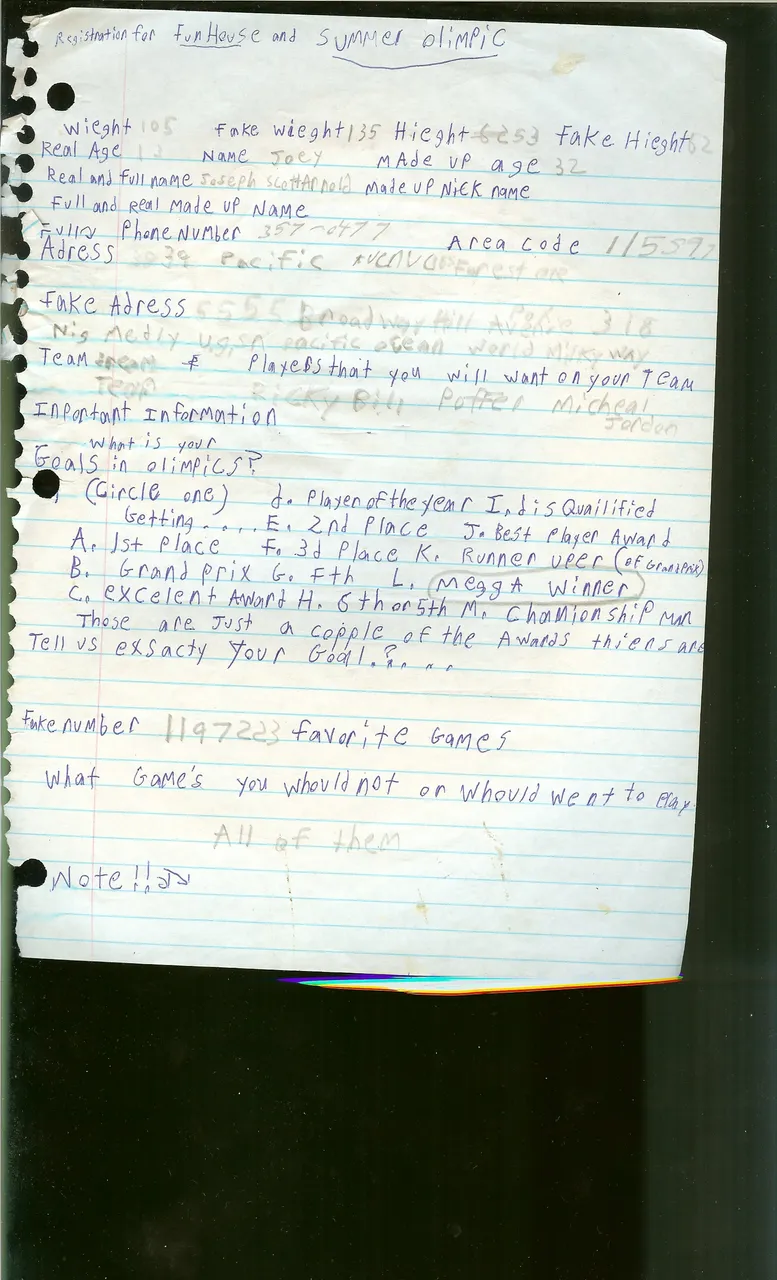 Registration for FunHouse and SUMMER OLIMPIC
Wieght 105 Fake Wieght 135 Hieght Fake Hieght 62
Real Age NAME Joey MAde UP age 32
Real and full name Joseph Scott Arnold Made UP Nick name
Full and Real Made UP Name
Phone Number 357-0477 Area Code
Adress Pacific Forest
Fake Adress 5555 Broadway Hill 318
Medly pacific ocean world Milky way
Team & Players that you will want on your Team
Team Ricky Bill Potter Micheal
Jordon
Inportant Information
What is your
Goals in olimpics?
(Circle one) d. Player of the year I. dis Quailified
Getting..... E. 2nd Place J. Best Player Award
A. 1st Place F. 3d Place K. Runner uper (of Grandprix)
B. Grand prix G. Fth L. Megga Winner
C. excelent Award H. 6th or 5th M. Chamionship man
Those are Just a copple of the Awards thiers are
Tell us exsacty Your Goal.?...
Fake number 1197223 favorite Games
What Game's you whould not or whould went to play
All of them
Note!!